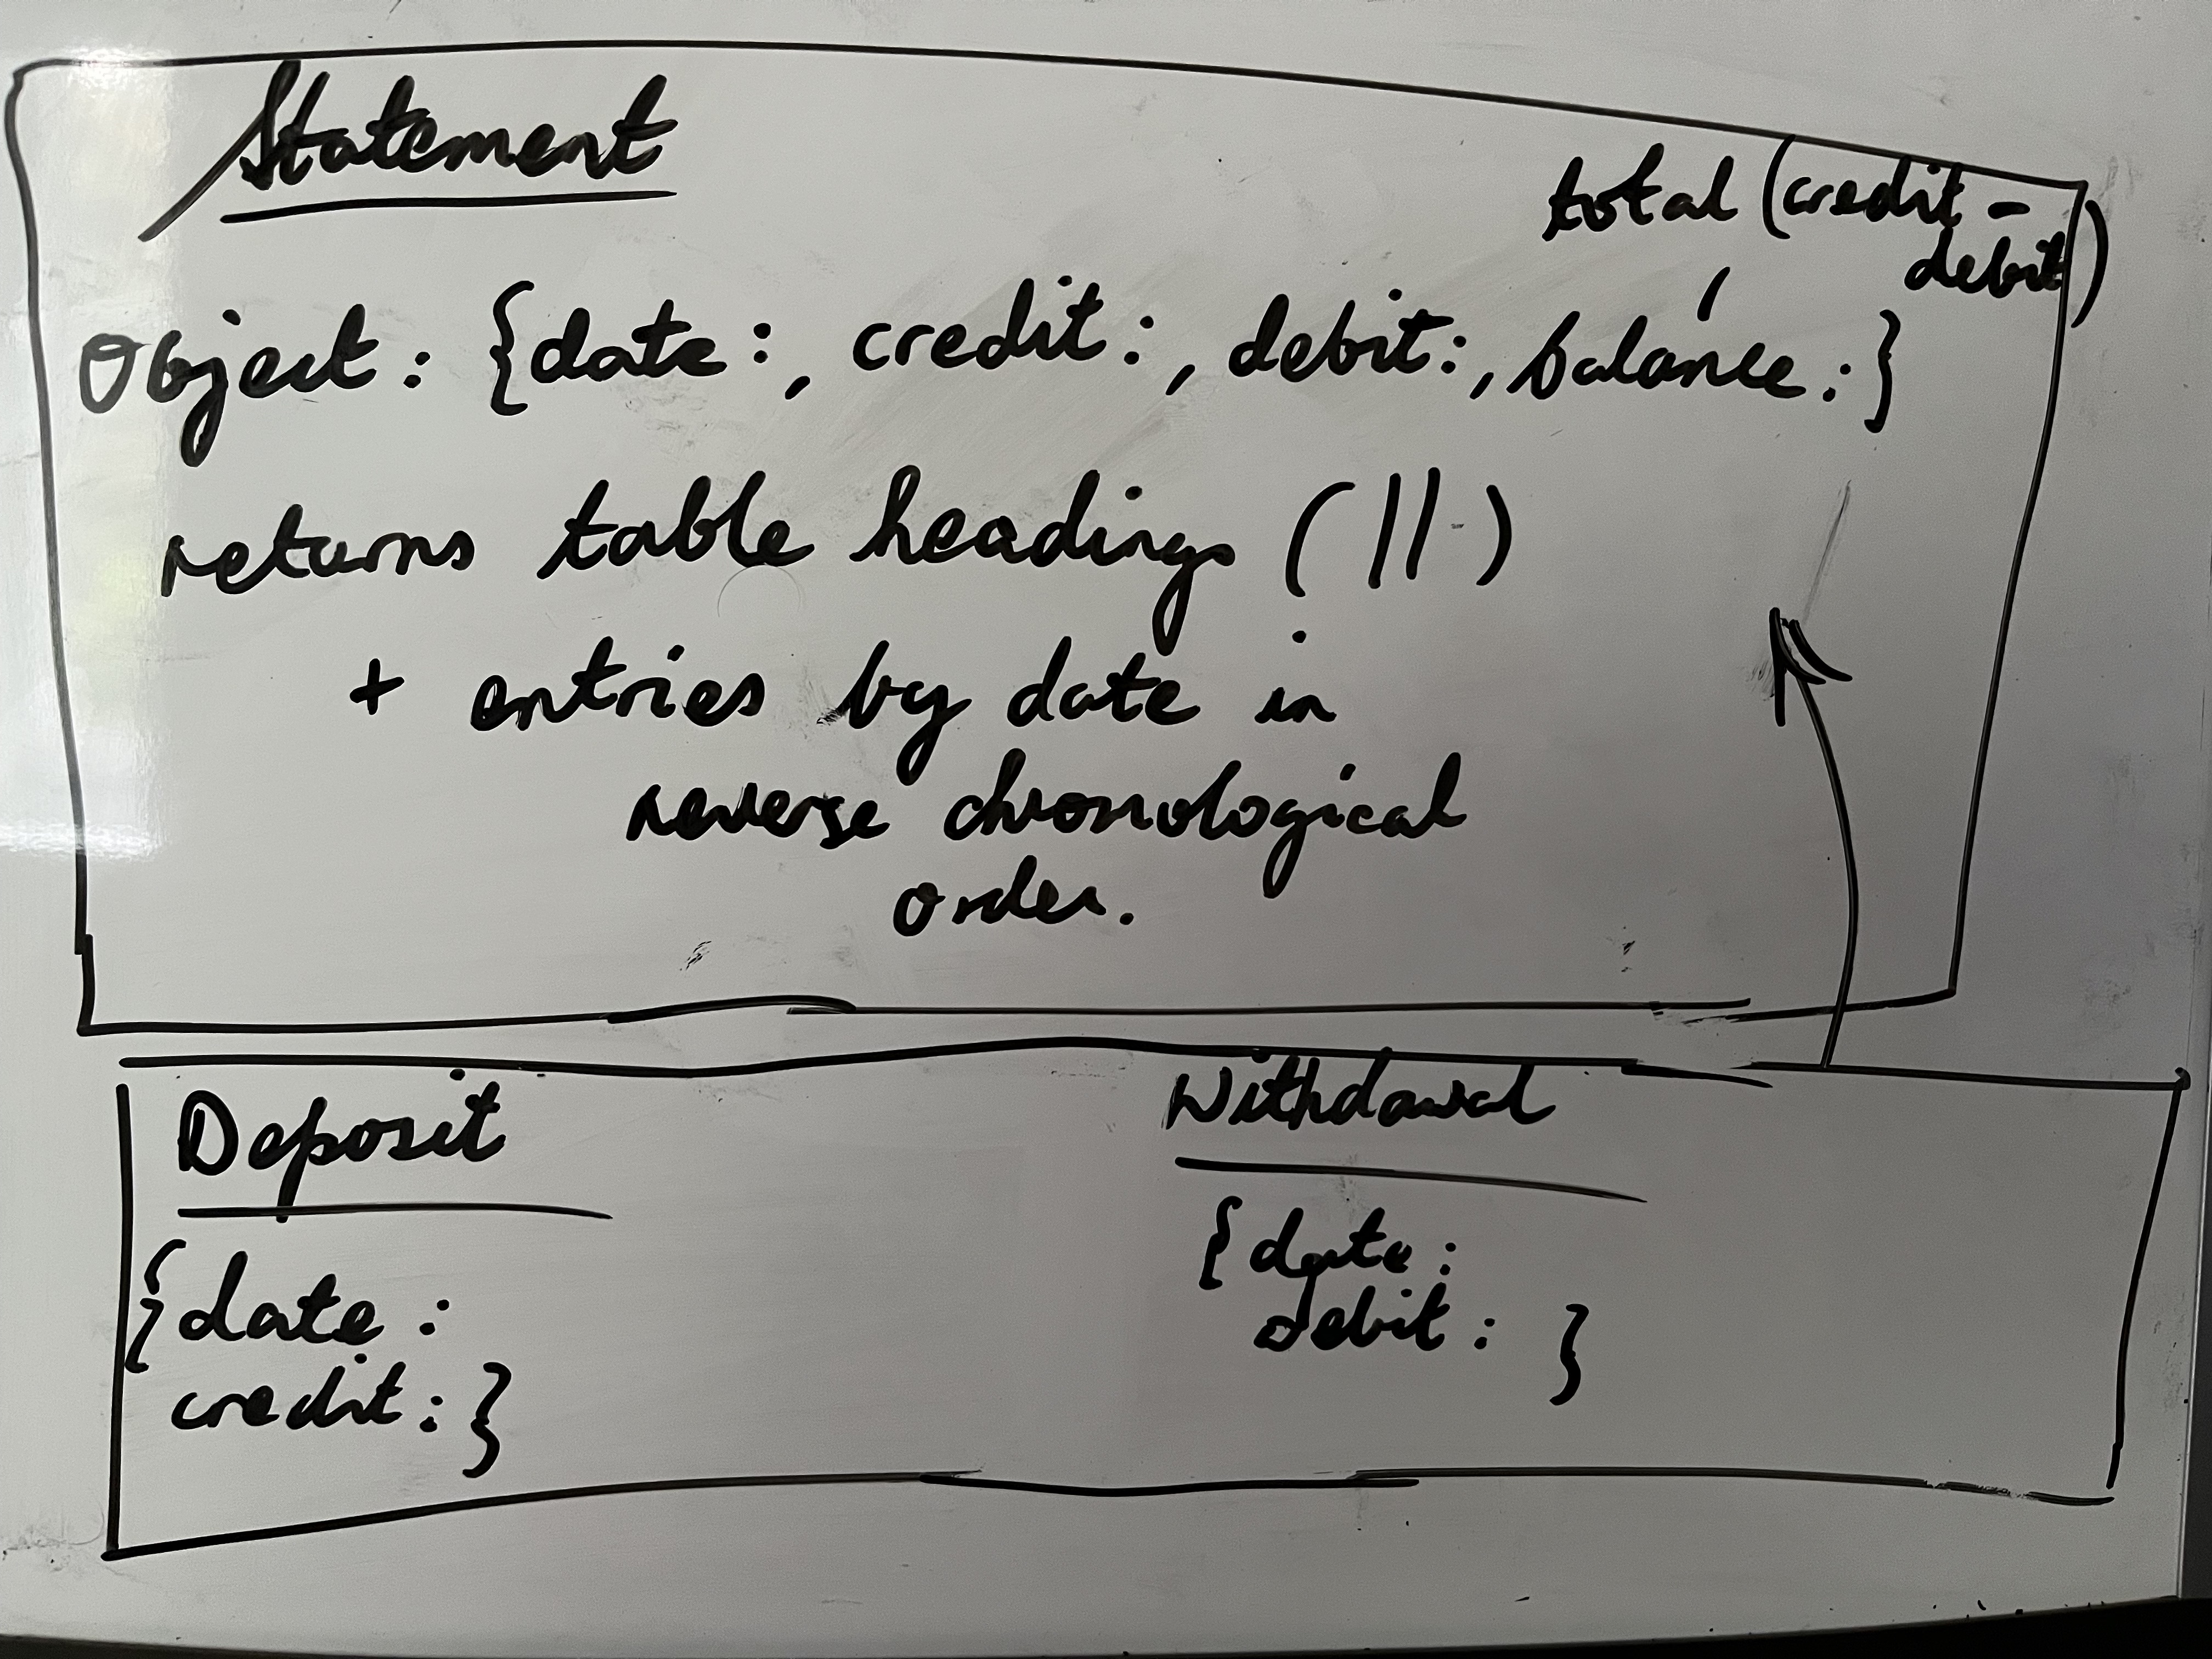 Statement
total (credit -
debit)
Object: {date:, credit:, debit:, balance:}
returns table headings ( || )
+ entries by date in
reverse chronological
order.
Deposit
{date:
credit: }
Withdawal
{date:
debit: }